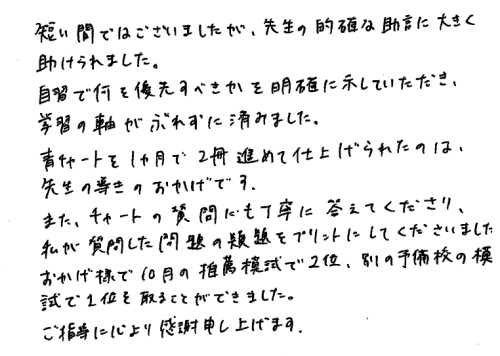 短い間ではございましたが、先生の的確な助言に大きく
助けられました。
自習で何を優先すべきかを明確に示していただき、
学習の軸がぶれずに済みました。
青チャートを1ヶ月で2冊進めて仕上げられたのは、
先生の導きのおかげです.
また、チャートの質問にも丁寧に答えてくださり、
私が質問した問題の類題をプリントにしてくださいました
おかげ様で10月の推薦模試で2位、別の予備校の模
試で1位を取ることができました。
ご指導に心より感謝申し上げます.